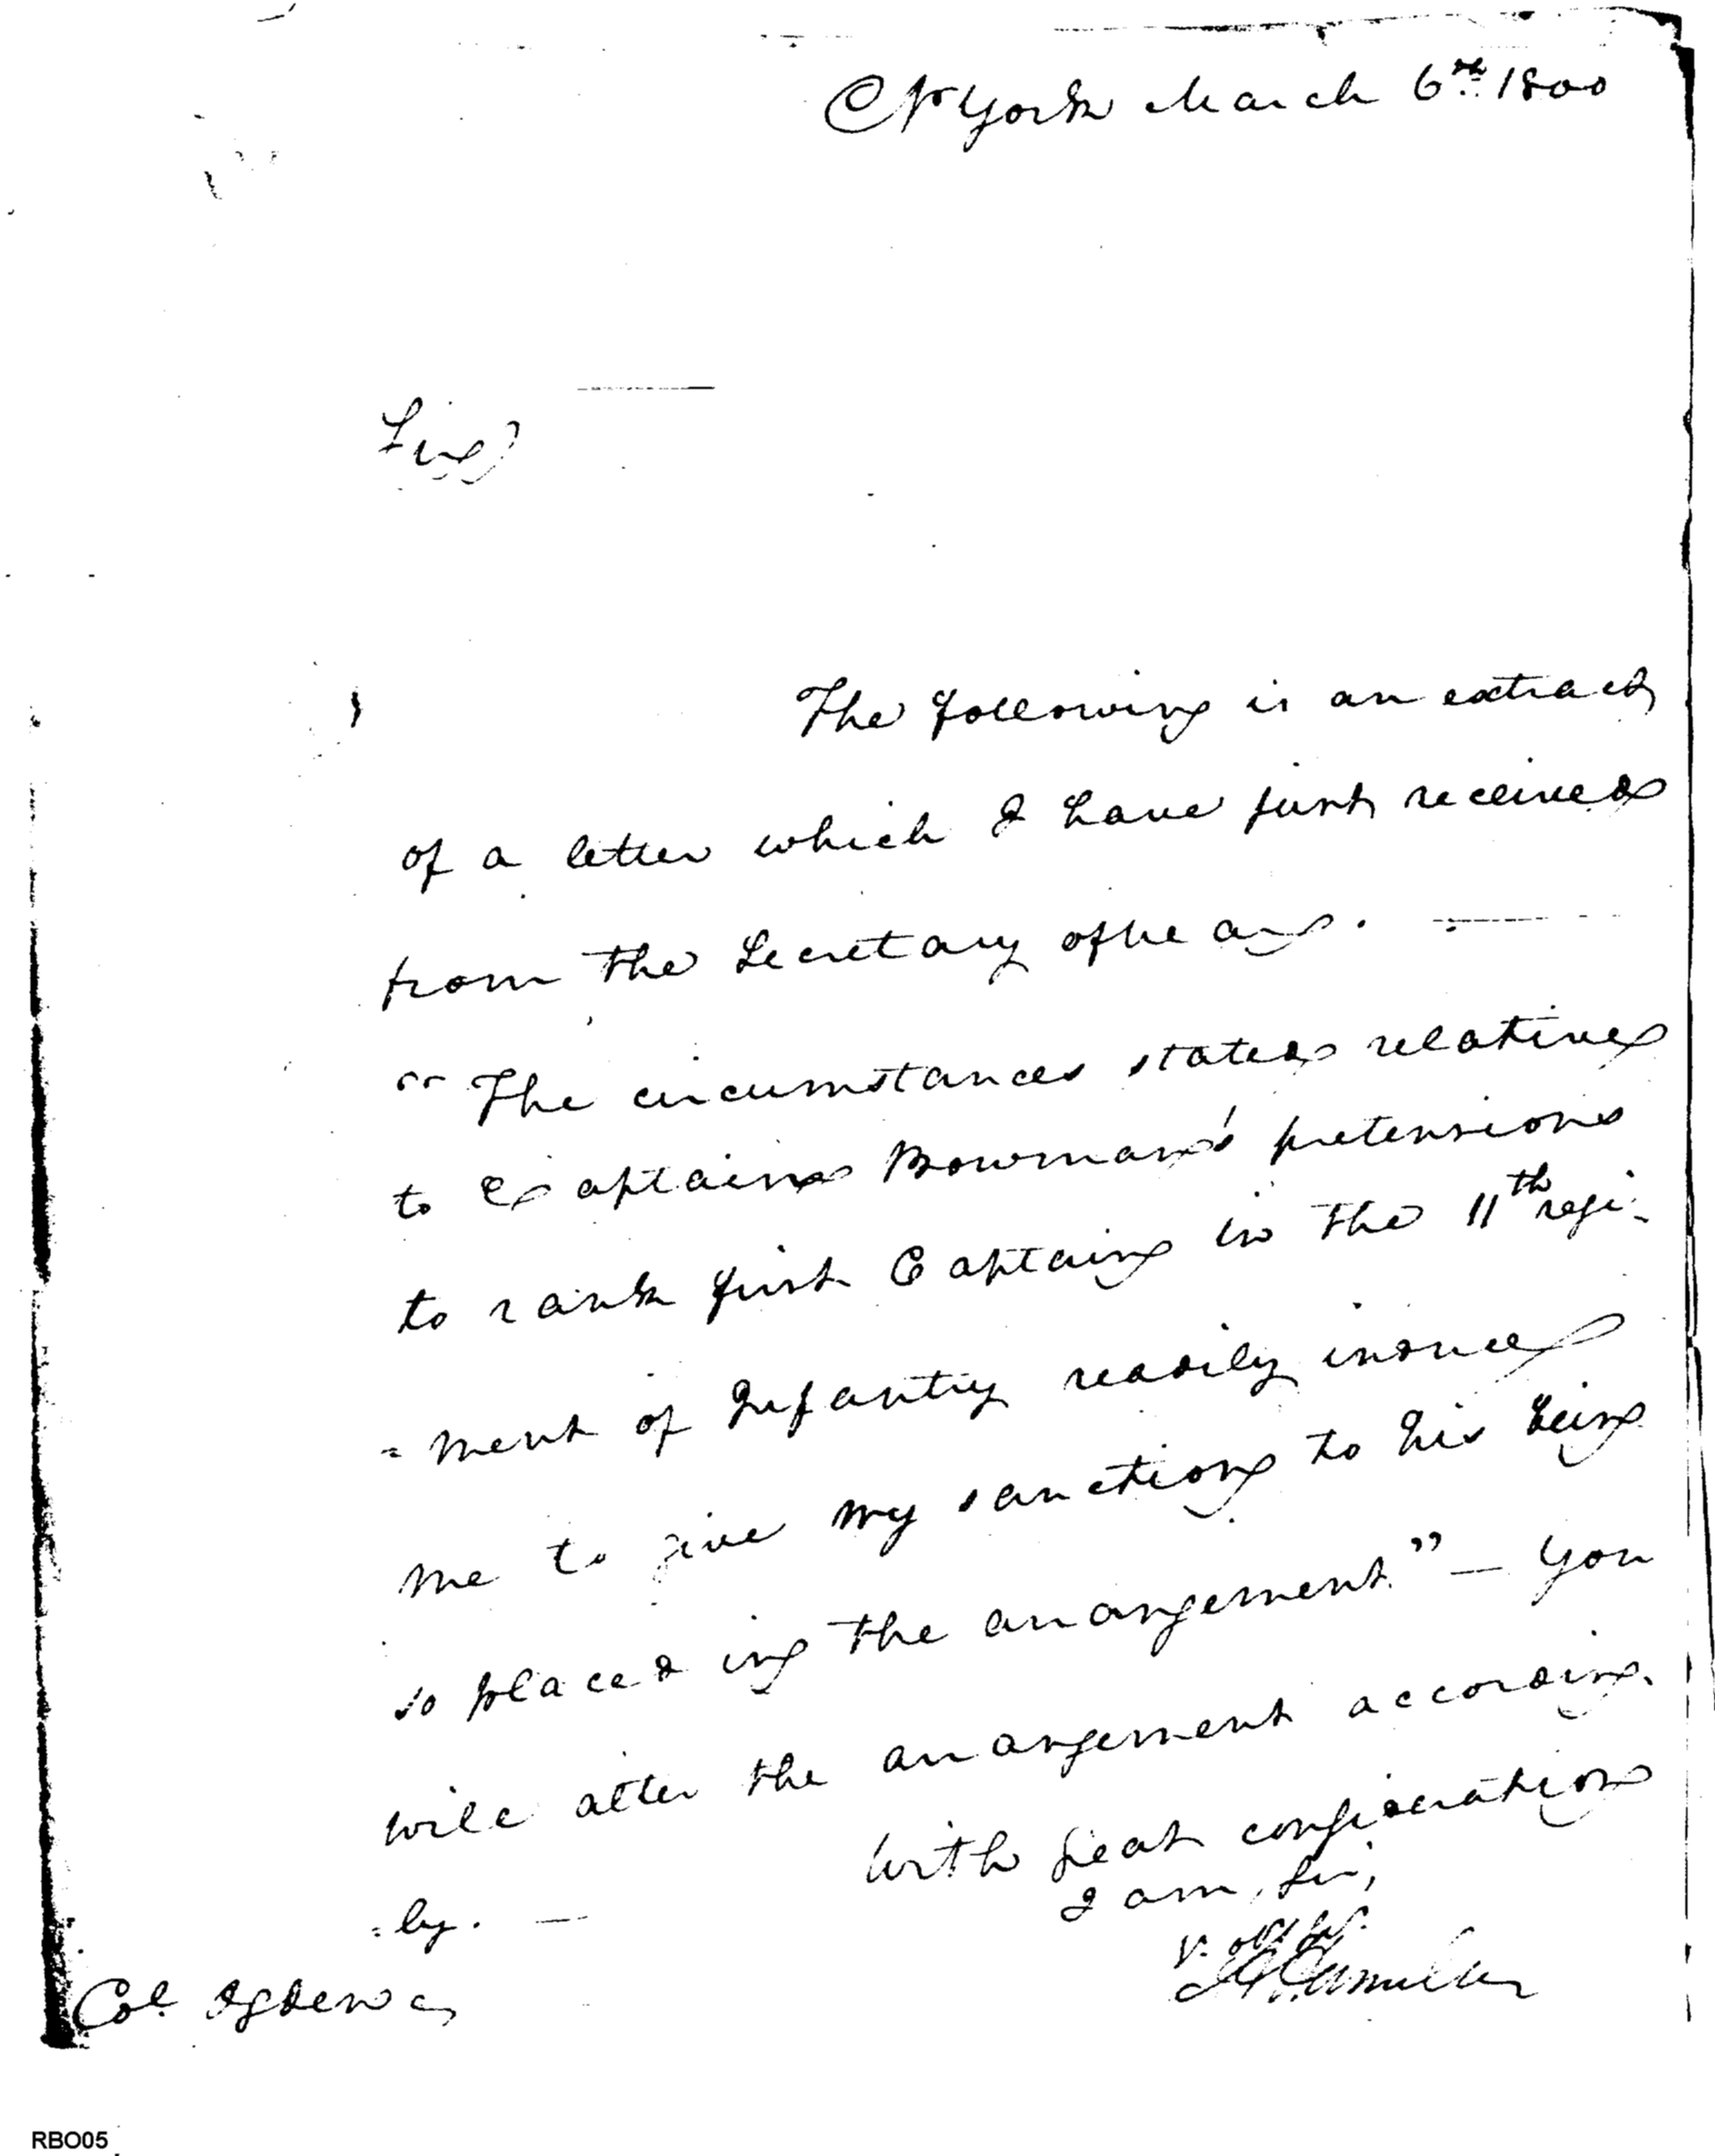 N York March 6th. 1800
Sir
The following is an extract
of a letter which I have just received
from the Secretary of the
"The circumstances stated relative
to Captain Bowman's pretensions
to rank first Captain in the 11th regi-
=ment of Infantry readily induced
me to give my sanction to his being
so placed in the arrangement" — You
will alter the arrangement according.
=ly. —
With great consideration
I am, Sir,
A Hamilton
Col. Ogden
RBO05